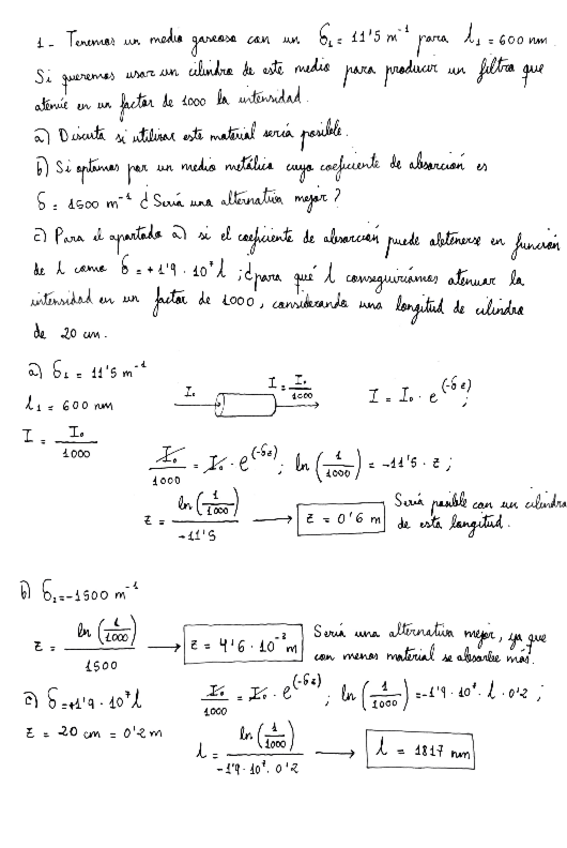 1- Tenemos un medio gaseoso con un δ₁ = 11'5 m⁻¹ para λ₁ = 600 nm
Si queremos usar un cilindro de este medio para producir un filtro que
atenúe en un factor de 1000 la intensidad.
a) Discuta si utilizar este material sería posible.
b) Si optamos por un medio metálico cuyo coeficiente de absorción es
δ = 1500 m⁻¹ ¿Sería una alternativa mejor?
c) Para el apartado a) si el coeficiente de absorción puede obtenerse en función
de λ como δ = +1'9 · 10⁷ λ ; ¿para qué λ conseguiríamos atenuar la
intensidad en un factor de 1000, considerando una longitud de cilindro
de 20 cm.
a) δ₁ = 11'5 m⁻¹
λ₁ = 600 nm
I = I₀/1000
I₀ I = I₀/1000 I = I₀ · e^(-δz) ;
I₀/1000 = I₀ · e^(-δz) ; ln (1/1000) = -11'5 · z ;
z = ln (1/1000) / -11'5 → z = 0'6 m Sería posible con un cilindro
de esta longitud.
b) δ₂ = -1500 m⁻¹
z = ln (1/1000) / 1500 → z = 4'6 · 10⁻³ m Sería una alternativa mejor, ya que
con menos material se absorbe más.
c) δ = +1'9 · 10⁷ λ I₀/1000 = I₀ · e^(-δz) ; ln (1/1000) = -1'9 · 10⁷ · λ · 0'2 ;
z = 20 cm = 0'2 m
λ = ln (1/1000) / -1'9 · 10⁷ · 0'2 → λ = 1817 nm